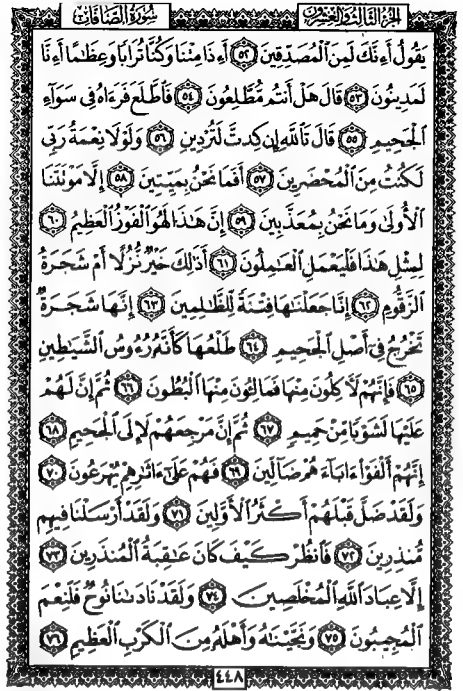 الجزء الثالث والعشرون سورة الصافات
يَقُولُ أَءِنَّكَ لَمِنَ ٱلْمُصَدِّقِينَ ٥٢ أَءِذَا مِتْنَا وَكُنَّا تُرَابًا وَعِظَٰمًا أَءِنَّا
لَمَدِينُونَ ٥٣ قَالَ هَلْ أَنتُم مُّطَّلِعُونَ ٥٤ فَٱطَّلَعَ فَرَءَاهُ فِى سَوَآءِ
ٱلْجَحِيمِ ٥٥ قَالَ تَٱللَّهِ إِن كِدتَّ لَتُرْدِينِ ٥٦ وَلَوْلَا نِعْمَةُ رَبِّى
لَكُنتُ مِنَ ٱلْمُحْضَرِينَ ٥٧ أَفَمَا نَحْنُ بِمَيِّتِينَ ٥٨ إِلَّا مَوْتَتَنَا
ٱلْأُولَىٰ وَمَا نَحْنُ بِمُعَذَّبِينَ ٥٩ إِنَّ هَٰذَا لَهُوَ ٱلْفَوْزُ ٱلْعَظِيمُ ٦٠
لِمِثْلِ هَٰذَا فَلْيَعْمَلِ ٱلْعَٰمِلُونَ ٦١ أَذَٰلِكَ خَيْرٌ نُّزُلًا أَمْ شَجَرَةُ
ٱلزَّقُّومِ ٦٢ إِنَّا جَعَلْنَٰهَا فِتْنَةً لِّلظَّٰلِمِينَ ٦٣ إِنَّهَا شَجَرَةٌ
تَخْرُجُ فِىٓ أَصْلِ ٱلْجَحِيمِ ٦٤ طَلْعُهَا كَأَنَّهُۥ رُءُوسُ ٱلشَّيَٰطِينِ
٦٥ فَإِنَّهُمْ لَءَاكِلُونَ مِنْهَا فَمَالِـُٔونَ مِنْهَا ٱلْبُطُونَ ٦٦ ثُمَّ إِنَّ لَهُمْ
عَلَيْهَا لَشَوْبًا مِّنْ حَمِيمٍ ٦٧ ثُمَّ إِنَّ مَرْجِعَهُمْ لَإِلَى ٱلْجَحِيمِ ٦٨
إِنَّهُمْ أَلْفَوْا۟ ءَابَآءَهُمْ ضَآلِّينَ ٦٩ فَهُمْ عَلَىٰٓ ءَاثَٰرِهِمْ يُهْرَعُونَ ٧٠
وَلَقَدْ ضَلَّ قَبْلَهُمْ أَكْثَرُ ٱلْأَوَّلِينَ ٧١ وَلَقَدْ أَرْسَلْنَا فِيهِم
مُّنذِرِينَ ٧٢ فَٱنظُرْ كَيْفَ كَانَ عَٰقِبَةُ ٱلْمُنذَرِينَ ٧٣
إِلَّا عِبَادَ ٱللَّهِ ٱلْمُخْلَصِينَ ٧٤ وَلَقَدْ نَادَىٰنَا نُوحٌ فَلَنِعْمَ
ٱلْمُجِيبُونَ ٧٥ وَنَجَّيْنَٰهُ وَأَهْلَهُۥ مِنَ ٱلْكَرْبِ ٱلْعَظِيمِ ٧٦
٤٤٨